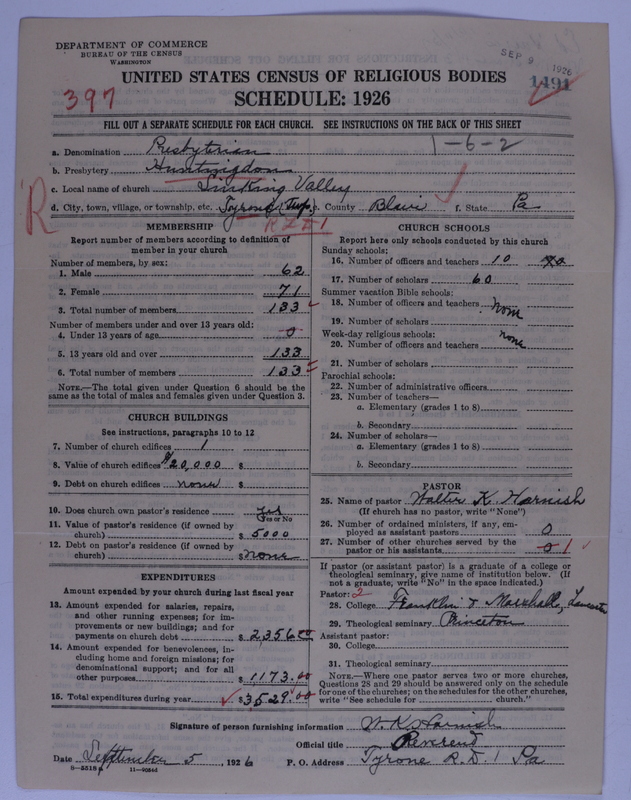 DEPARTMENT OF COMMERCE
BUREAU OF THE CENSUS
WASHINGTON
SEP 9 1926
1491
397
UNITED STATES CENSUS OF RELIGIOUS BODIES
SCHEDULE: 1926
FILL OUT A SEPARATE SCHEDULE FOR EACH CHURCH. SEE INSTRUCTIONS ON THE BACK OF THIS SHEET
1-6-2
a. Denomination Presbyterian
b. Presbytery Huntingdon
c. Local name of church Sinking Valley
R
d. City, town, village, or township, etc. Tyrone Twp. e. County Blair f. State Pa
R.F.D.1
MEMBERSHIP
Report number of members according to definition of
member in your church
Number of members, by sex:
1. Male 62
2. Female 71
3. Total number of members 133
Number of members under and over 13 years old:
4. Under 13 years of age 0
5. 13 years old and over 133
6. Total number of members 133
NOTE.—The total given under Question 6 should be
same as the total of males and females given under Question 3.
CHURCH BUILDINGS
See instructions, paragraphs 10 to 12
7. Number of church edifices 1
8. Value of church edifices $20,000 $
9. Debt on church edifices none $
10. Does church own pastor's residence Yes
Yes or No
11. Value of pastor's residence (if owned by
church) $ 5000
12. Debt on pastor's residence (if owned by
church) $ none
EXPENDITURES
Amount expended by your church during last fiscal year
13. Amount expended for salaries, repairs,
and other running expenses; for im-
provements or new buildings; and for
payments on church debt $ 2,356.00
14. Amount expended for benevolences, in-
cluding home and foreign missions; for
denominational support; and for all
other purposes 1173.00
15. Total expenditures during year $ 3529.00
CHURCH SCHOOLS
Report here only schools conducted by this church
Sunday schools:
16. Number of officers and teachers 10
17. Number of scholars 60
Summer vacation Bible schools:
18. Number of officers and teachers none
19. Number of scholars
Week-day religious schools:
20. Number of officers and teachers none
21. Number of scholars
Parochial schools:
22. Number of administrative officers
23. Number of teachers—
a. Elementary (grades 1 to 8)
b. Secondary
24. Number of scholars—
a. Elementary (grades 1 to 8)
b. Secondary
PASTOR
25. Name of pastor Walter K. Harnish
(If church has no pastor, write "None")
26. Number of ordained ministers, if any, em-
ployed as assistant pastors 0
27. Number of other churches served by the
pastor or his assistants 0 1
If pastor (or assistant pastor) is a graduate of a college or
theological seminary, give name of institution below. (If
not a graduate, write "No" in the space indicated.)
Pastor: 2
28. College Franklin & Marshall, Lancaster
29. Theological seminary Princeton
Assistant pastor:
30. College
31. Theological seminary
NOTE.—Where one pastor serves two or more churches,
Questions 28 and 29 should be answered only on the schedule
for one of the churches; on the schedules for the other churches,
write "See schedule for church."
Signature of person furnishing information W. K. Harnish
Official title Reverend
Date September 5, 1926 P. O. Address Tyrone R.D. 1 Pa
8—5518